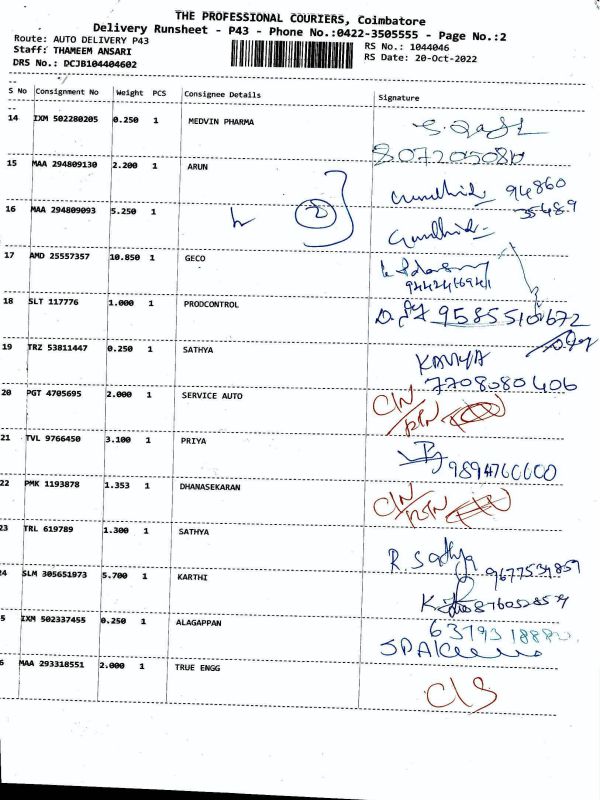 THE PROFESSIONAL COURIERS, Coimbatore
Delivery Runsheet - P43 - Phone No.:0422-3505555 - Page No.:2
Route: AUTO DELIVERY P43
RS No.: 1044046
Staff: THAMEEM ANSARI
RS Date: 20-Oct-2022
DRS No.: DCJB104404602
S No Consignment No Weight PCS Consignee Details Signature
14 IXM 502280205 0.250 1 MEDVIN PHARMA
15 MAA 294809130 2.200 1 ARUN
94860
35489
16 MAA 294809093 5.250 1
2
17 AMD 25557357 10.850 1 GECO
18 SLT 117776 1.000 1 PRODCONTROL
9585510672
19 TRZ 53811447 0.250 1 SATHYA KAVIYA
7708080406
20 PGT 4705695 2.000 1 SERVICE AUTO C/N
RTN
21 TVL 9766450 3.100 1 PRIYA
9894760600
22 PMK 1193878 1.353 1 DHANASEKARAN C/N
RTN
23 TRL 619789 1.300 1 SATHYA R. Sathya
9677534857
24 SLM 305651973 5.700 1 KARTHI
5 IXM 502337455 0.250 1 ALAGAPPAN
6 MAA 293318551 2.000 1 TRUE ENGG C/S